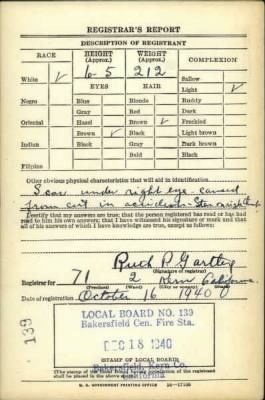 REGISTRAR'S REPORT
DESCRIPTION OF REGISTRANT
RACE HEIGHT (Approx.) WEIGHT (Approx.) COMPLEXION
6-5 212
White ✓ Sallow
EYES HAIR Light ✓
Negro Blue Blonde Ruddy
Gray Red Dark
Oriental Hazel Brown ✓ Freckled
Brown ✓ Black Light brown
Indian Black Gray Dark brown
Bald Black
Filipino
Other obvious physical characteristics that will aid in identification
Scar under right eye caused
from cut in accident
I certify that my answers are true; that the person registered has read or has had
read to him his own answers; that I have witnessed his signature or mark and that
all of his answers of which I have knowledge are true, except as follows:
Ruth P.
(Signature of registrar)
Registrar for 71 2 Kern California
(Precinct) (Ward) (City or county) (State)
Date of registration October 16 1940
LOCAL BOARD NO. 139
Bakersfield Cen. Fire Sta.
DEC 18 1940
STAMP OF LOCAL BOARD
Bakersfield, Kern Co.
California
(The stamp of the Local Board having jurisdiction of the registrant
shall be placed in the above space.)
U. S. GOVERNMENT PRINTING OFFICE 16-17105
139